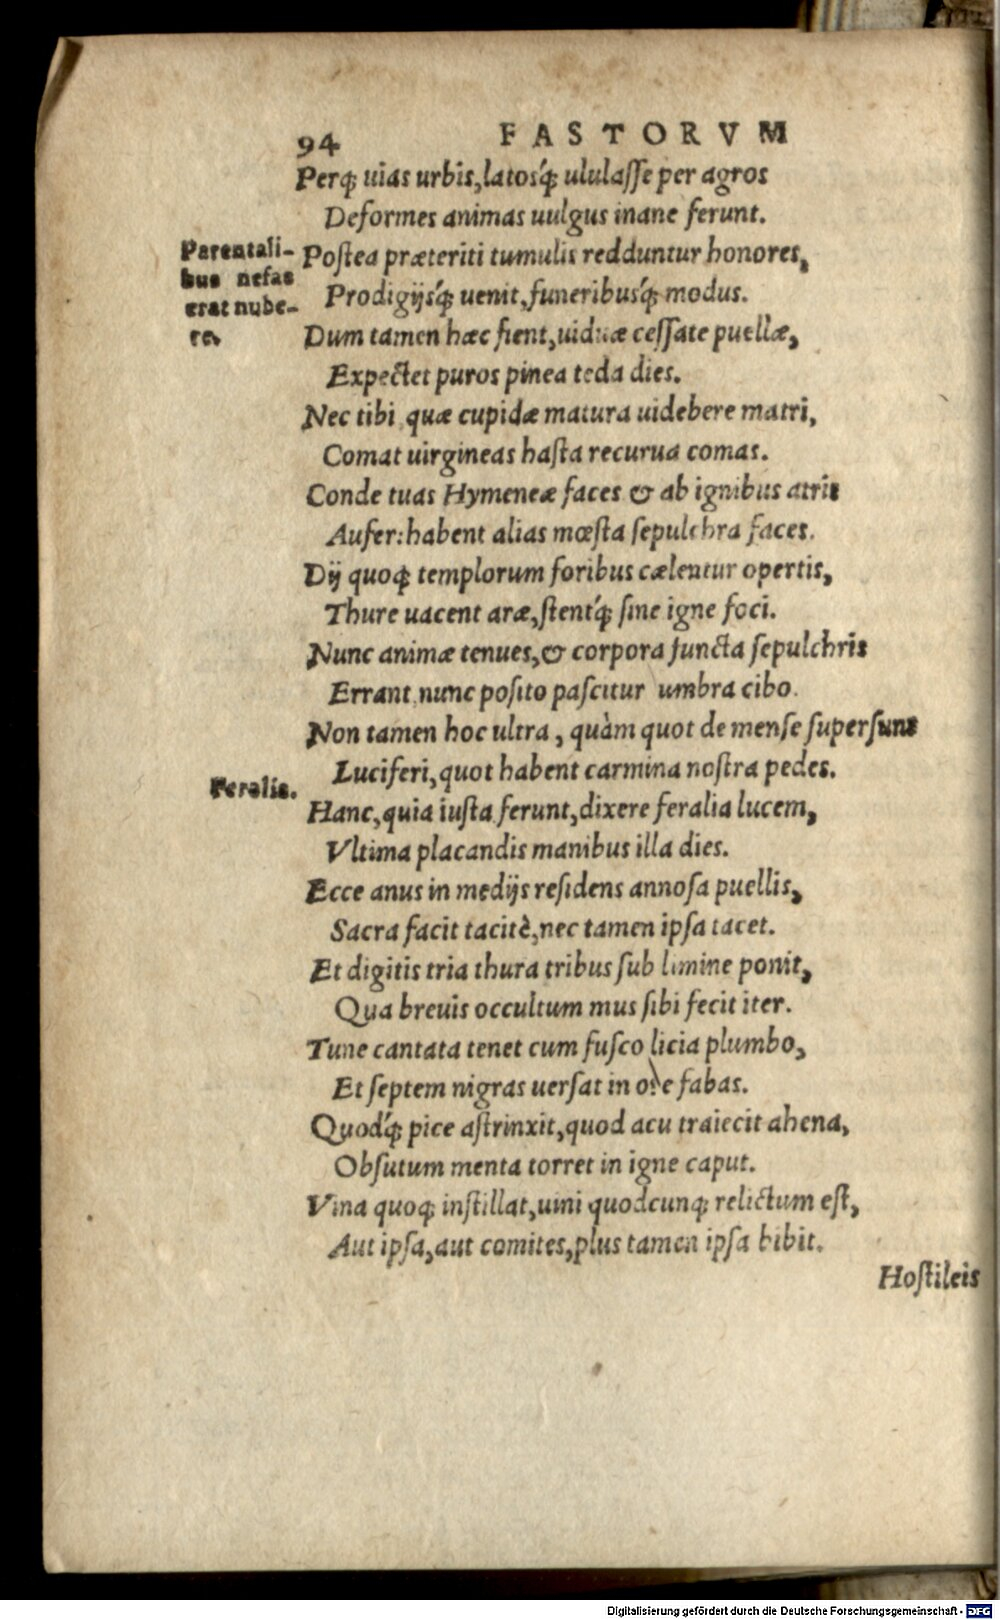 94 FASTORVM
Perq́; uias urbis, latosq́; ululasse per agros
Deformes animas uulgus inane ferunt.
Parentali-
bus nefas
erat nube-
re.
Postea præteriti tumulis redduntur honores,
Prodigijsq́; uenit, funeribusq́; modus.
Dum tamen hæc fient, uiduæ cessate puellæ,
Expectet puros pinea teda dies.
Nec tibi quæ cupidæ matura uidebere matri,
Comat uirgineas hasta recurua comas.
Conde tuas Hymeneæ faces & ab ignibus atris
Aufer: habent alias mœsta sepulchra faces.
Dij quoq; templorum foribus cælentur opertis,
Thure uacent aræ, stentq́; sine igne foci.
Nunc animæ tenues, & corpora functa sepulchris
Errant nunc posito pascitur umbra cibo.
Non tamen hoc ultra, quàm quot de mense supersunt
Luciferi, quot habent carmina nostra pedes.
Feralia.
Hanc, quia iusta ferunt, dixere feralia lucem,
Vltima placandis manibus illa dies.
Ecce anus in medijs residens annosa puellis,
Sacra facit tacitè, nec tamen ipsa tacet.
Et digitis tria thura tribus sub limine ponit,
Qua breuis occultum mus sibi fecit iter.
Tunc cantata tenet cum fusco licia plumbo,
Et septem nigras uersat in ore fabas.
Quodq́; pice astrinxit, quod acu traiecit ahena,
Obsutum menta torret in igne caput.
Vina quoq; instillat, uini quodcunq; relictum est,
Aut ipsa, aut comites, plus tamen ipsa bibit.
Hostileis
Digitalisierung gefördert durch die Deutsche Forschungsgemeinschaft - DFG